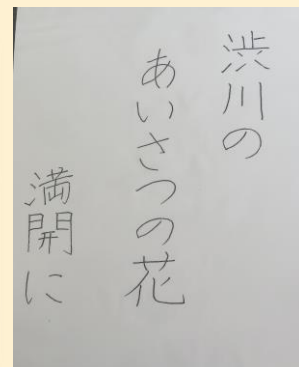 渋川の
あいさつの花
満開に